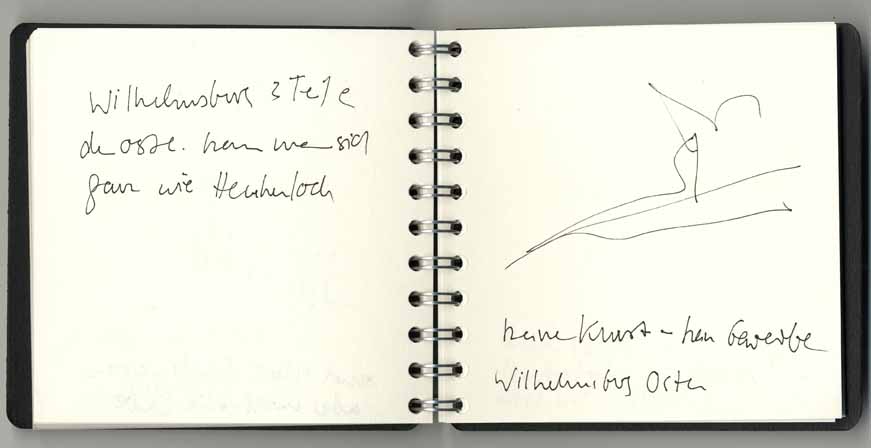 Wilhelmsburg 3 Teile
der Osten. kann man sich
ganz wie
keine Kunst - kein Gewerbe
Wilhelmsburg Osten